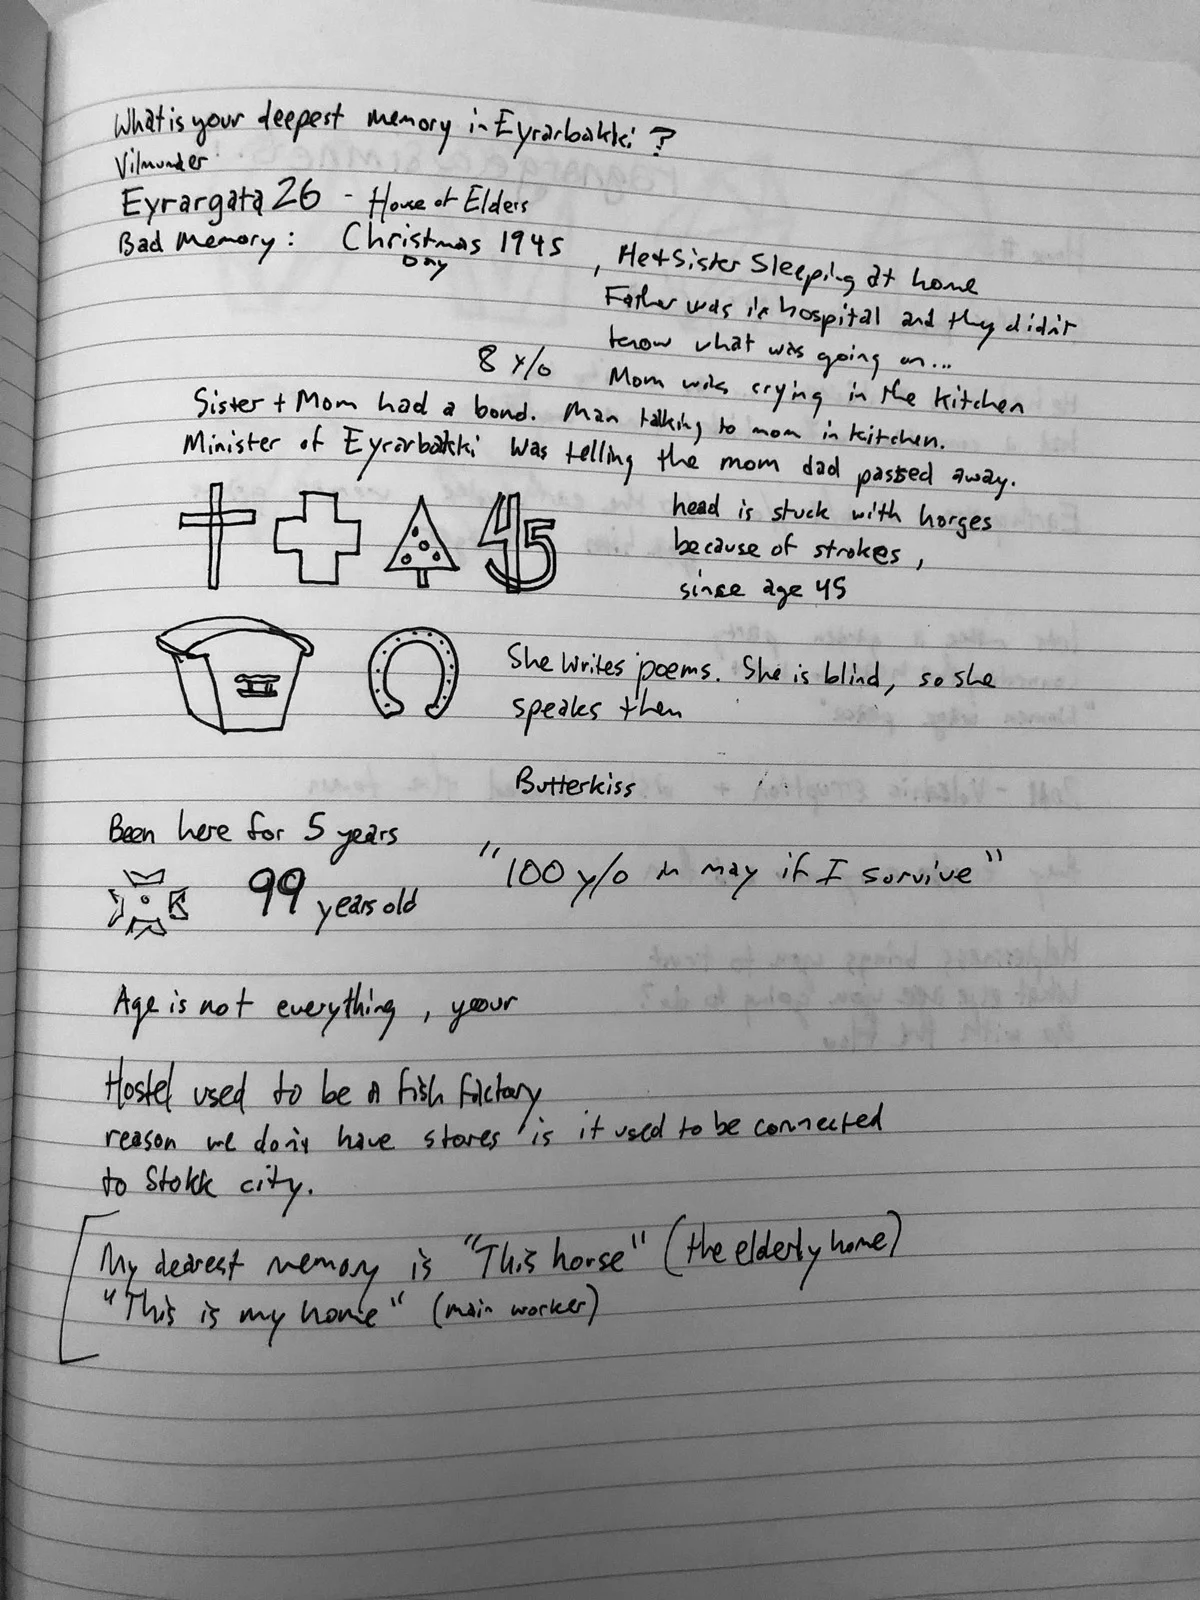 What is your deepest memory in Eyrarbakki?
Vilmunder
Eyrargata 26 - House of Elders
Bad Memory: Christmas 1945, He + Sister Sleeping at home
Day
Father was in hospital and they didn't
know what was going on...
8 y/o Mom was crying in the kitchen
Sister + Mom had a bond. Man talking to mom in kitchen.
Minister of Eyrarbakki was telling the mom dad passed away.
45
head is stuck with horses
because of strokes,
since age 45
She writes poems. She is blind, so she
speaks them
Butterkiss
Been here for 5 years
"100 y/o in may if I survive"
99 years old
Age is not everything, your
Hostel used to be a fish factory
reason we don't have stores is it used to be connected
to Stokk city.
My dearest memory is "This horse" (the elderly home)
"This is my home" (main worker)